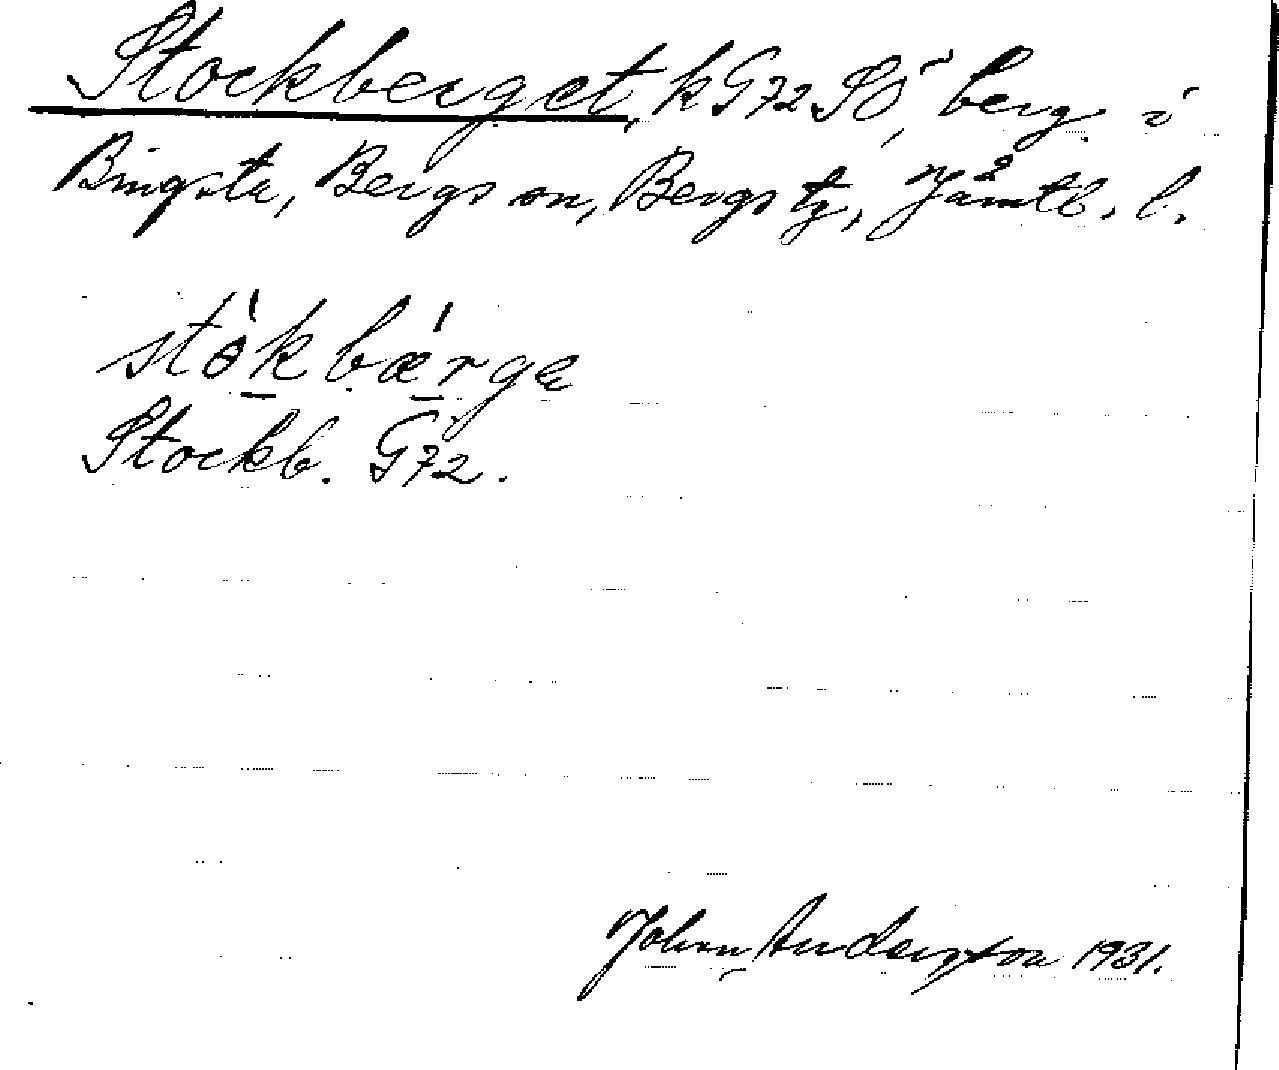 Stockberget, k G72 SÖ, berg i
Bingsta, Bergs sn, Bergs tg, Jämtl. l.
stòkbǽrgе
Stockb. G72.
John Anderzon 1931.